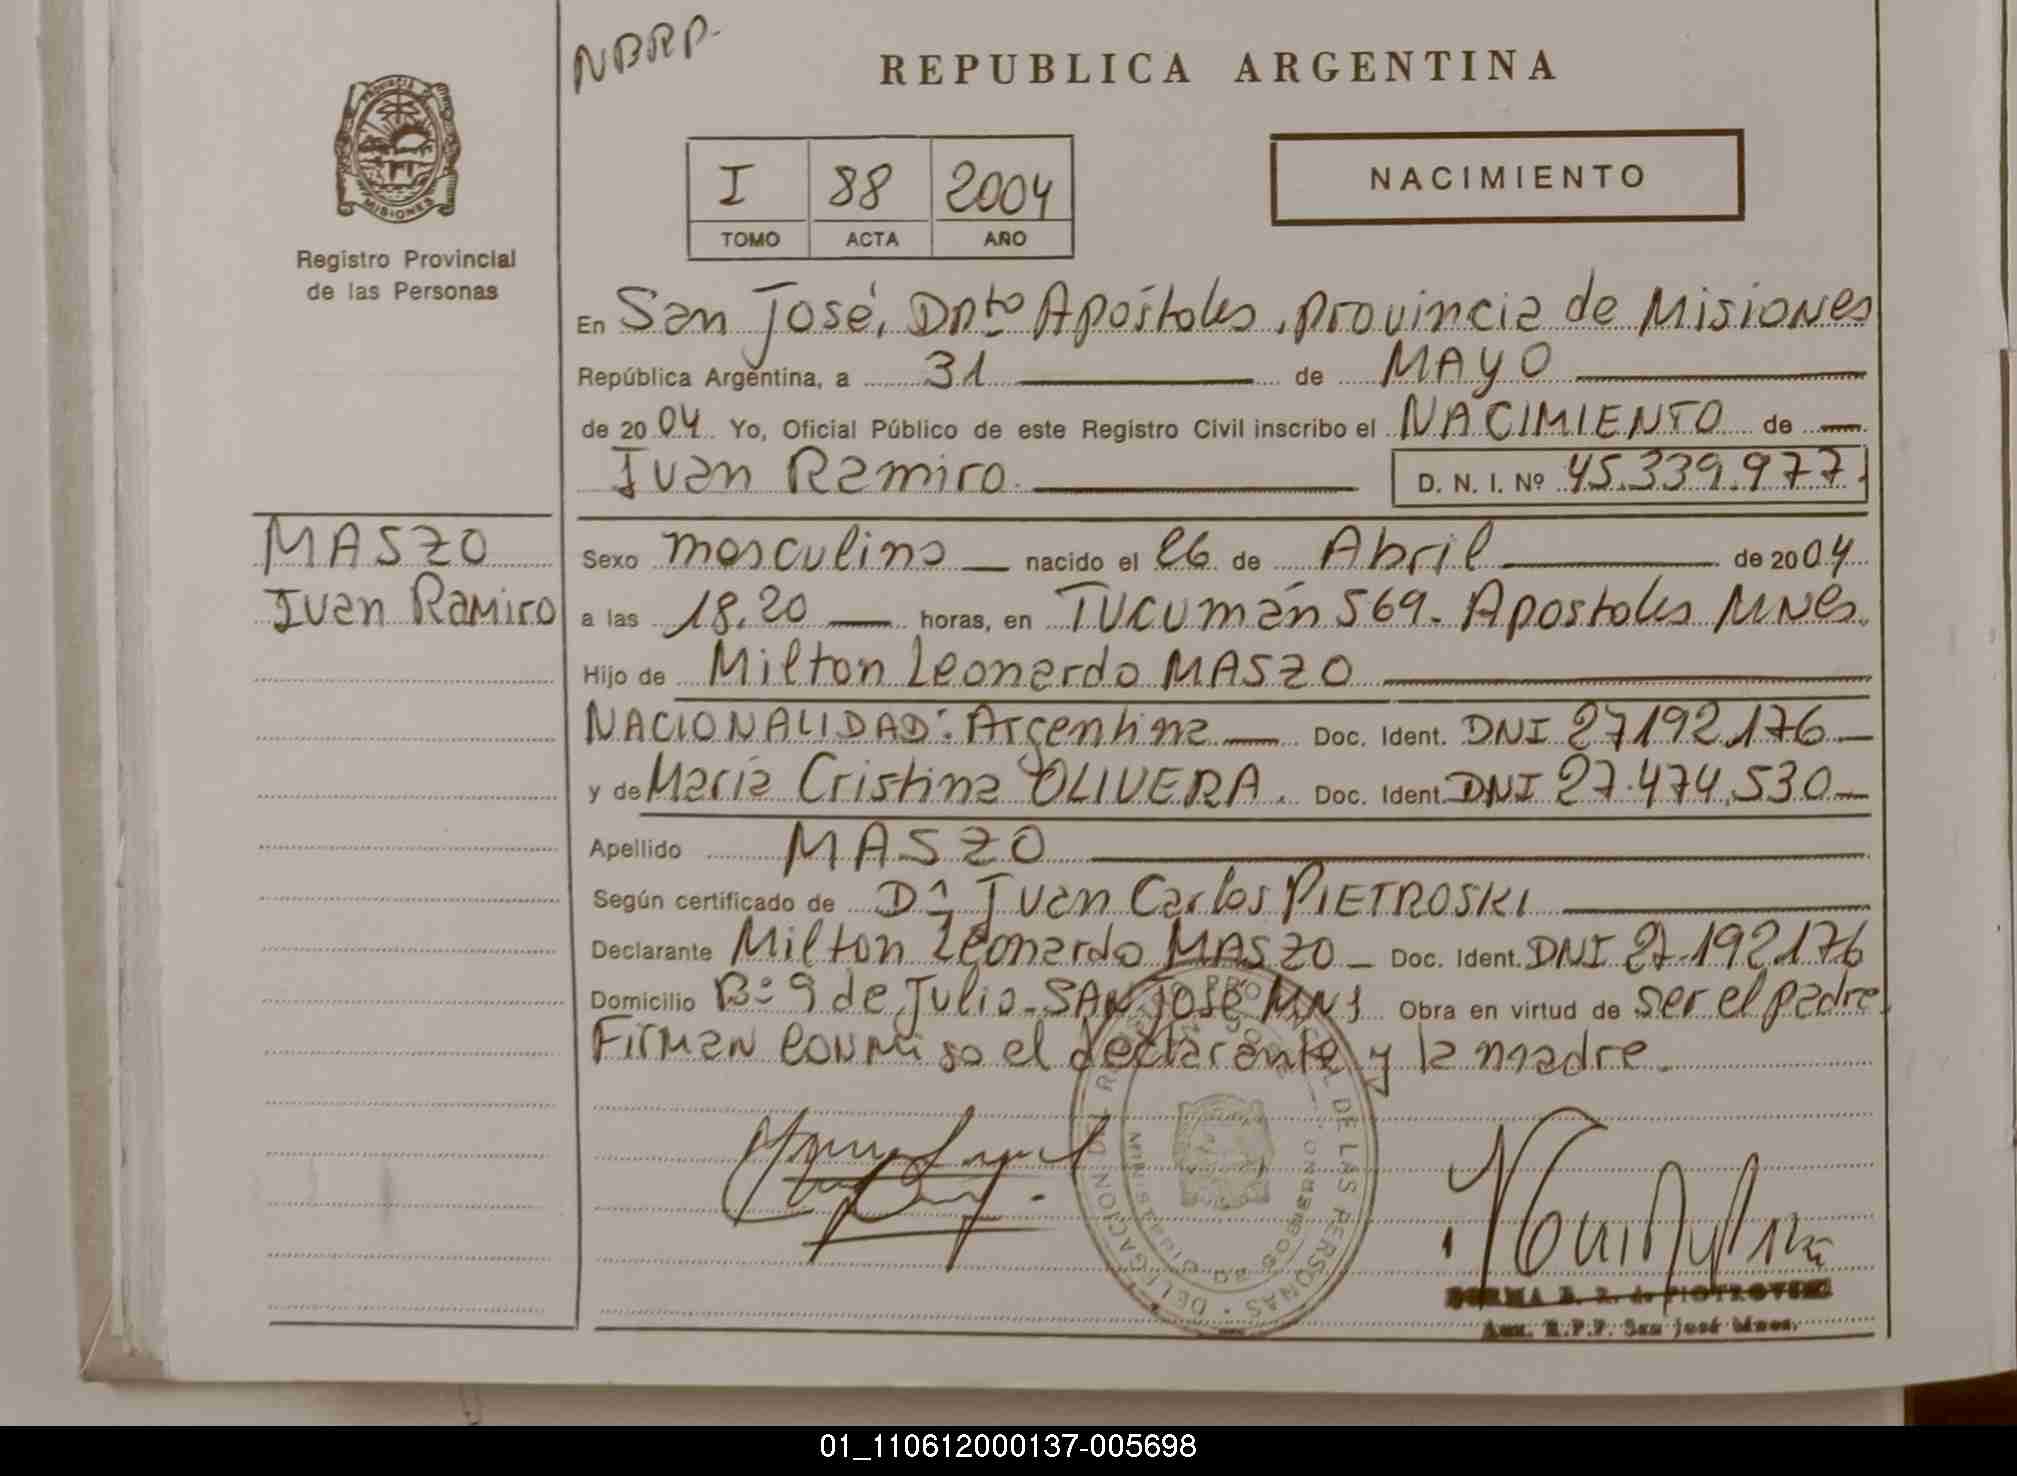 NBRP.
REPUBLICA ARGENTINA
PROVINCIA DE
MISIONES
Registro Provincial
de las Personas
I 88 2004
TOMO ACTA AÑO
NACIMIENTO
En San José, Dpto Apóstoles, provincia de Misiones
República Argentina, a 31 de MAYO
de 2004 Yo, Oficial Público de este Registro Civil inscribo el NACIMIENTO de
Juan Ramiro. D. N. I. Nº 45.339.977
MASZO
Juan Ramiro
Sexo masculino nacido el 26 de Abril de 2004
a las 18,20 horas, en Tucumán 569. Apostoles Mnes.
Hijo de Milton Leonardo MASZO
NACIONALIDAD: Argentina Doc. Ident. DNI 27192.176
y de María Cristina OLIVERA. Doc. Ident. DNI 27.474.530
Apellido MASZO
Según certificado de Dr. Juan Carlos PIETROSKI
Declarante Milton Leonardo MASZO Doc. Ident. DNI 27.192.176
Domicilio Bº 9 de Julio. SAN José MNS Obra en virtud de ser el padre
Firman conmigo el declarante y la madre.
DELEGACION DEL REGISTRO PROVINCIAL DE LAS PERSONAS
SAN JOSE
MINISTERIO DE GOBIERNO
NORMA B. R. de PIOTROVSKI
Aux. R.P.P. San José Mnes.
01_110612000137-005698